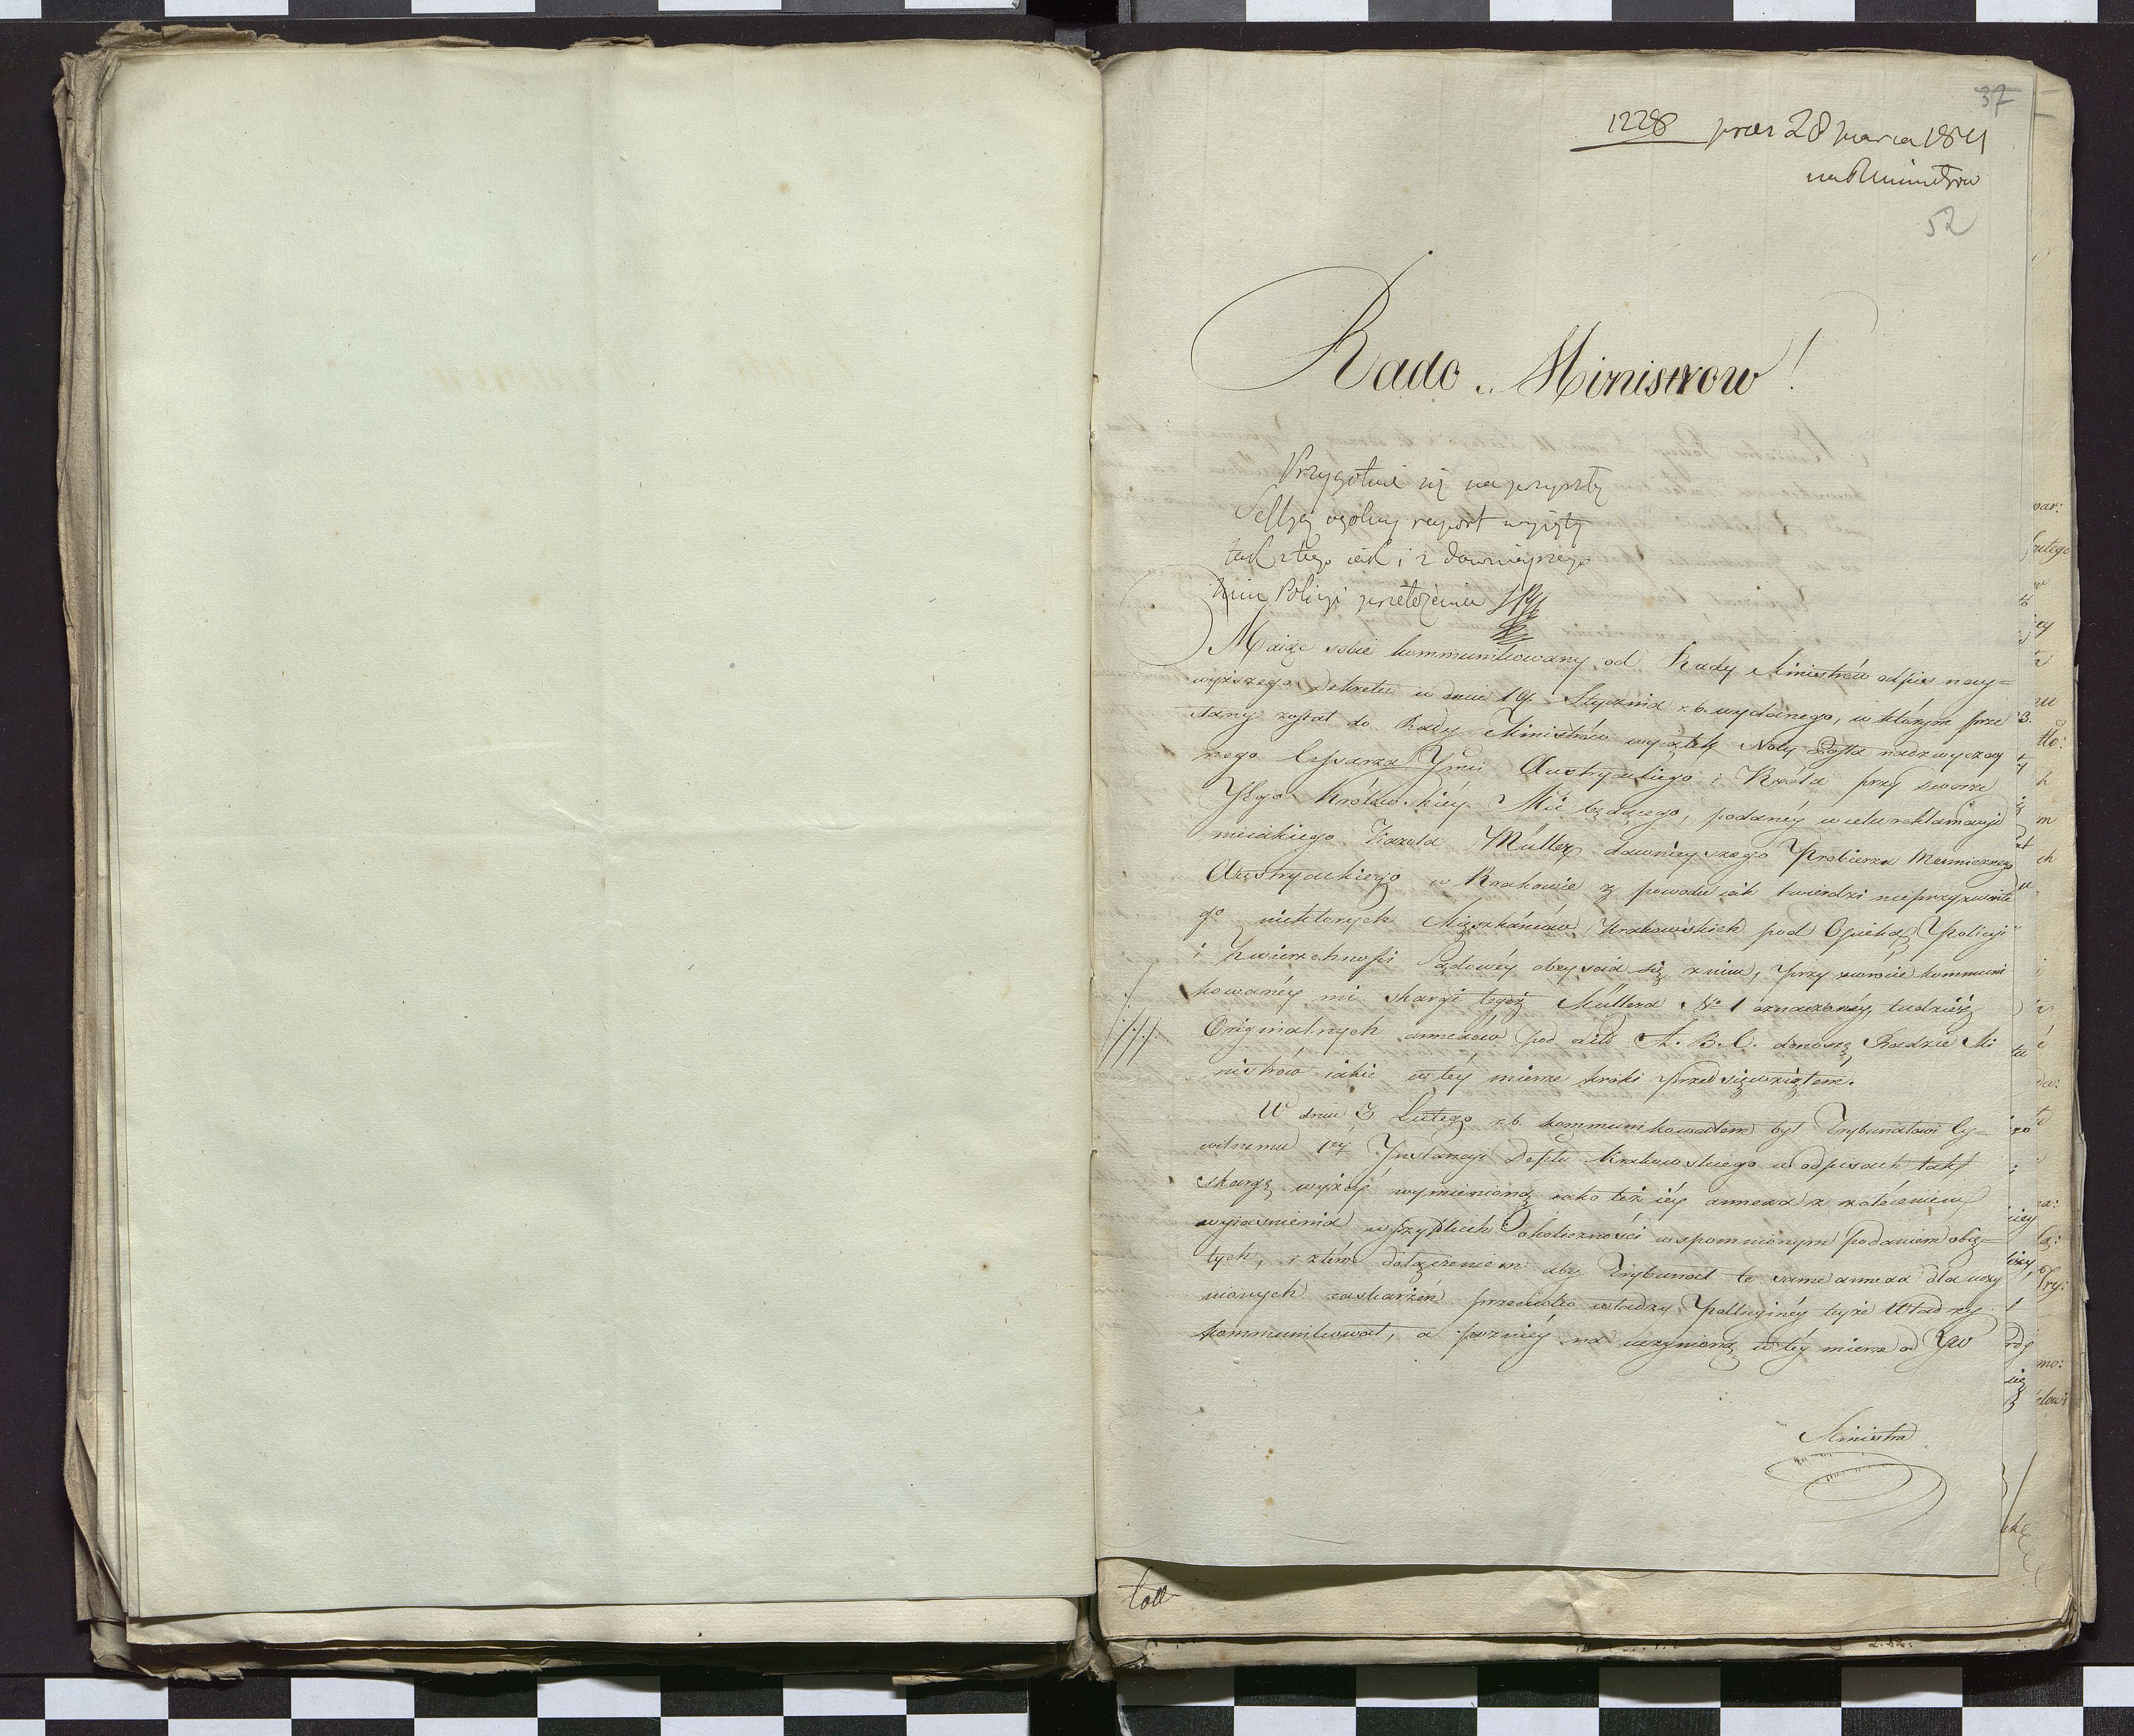 37
1228 praes 28 marca 1811
na R Ministrow
52
Rado Ministrow!
Przygotuie się na przyszłą
Sessyą ogólny raport wzięty
tak z tego iak i z dawnieyszego
Mina Policyi przełożenia
Maiąc sobie kommunikowany od Rady Ministrów odpis nay=
wyższego Dekretu w dniu 19. Stycznia r. b. wydanego, w którym prze
słany został do Rady Ministrów wyiątek Noty Posła nadzwyczay
nego Cesarza Jmci Austryackiego i Króla przy dworze
Jego Królewskiéy Mci będącego, podanéy w celu reklamacyi
nieiakiego Karola Müller dawnieyszego Probierza Menniczego
Austryackiego w Krakowie z powodu iak twierdzi nieprzyzwoite
go niektorych Mieszkańców Krakowskich pod Opieką Policyi
i Zwierzchności Sądowéy obeyścia się z nim, przy zwrócie kommuni
kowanéy mi skargi tegoż Müllera No 1 oznaczonéy, tudzież
Originalnych annexów pod Lit. A. B. C. donoszę Radzie Mi
nistrów iakie w téy mierze kroki przedsięwziąłem.
W dniu 3 Lutego r. b. kommunikowałem był Trybunałowi Cy=
wilnemu 1éy Instancyi Deptu Krakowskiego w odpisach tak
skargę wyżéy wymienioną iako też iéy annexa z zaleceniem
wyiaśnienia wszystkich okoliczności wspomnionym podaniem obię=
tych, i z tém dołączeniem aby Trybunał te same annexa dla uczy
nionych zaskarżeń przeciwko władzy Policyinéy teyże Władzy
kommunikował, a poźniéy na uczynioną w téy mierze od Try
Ministra